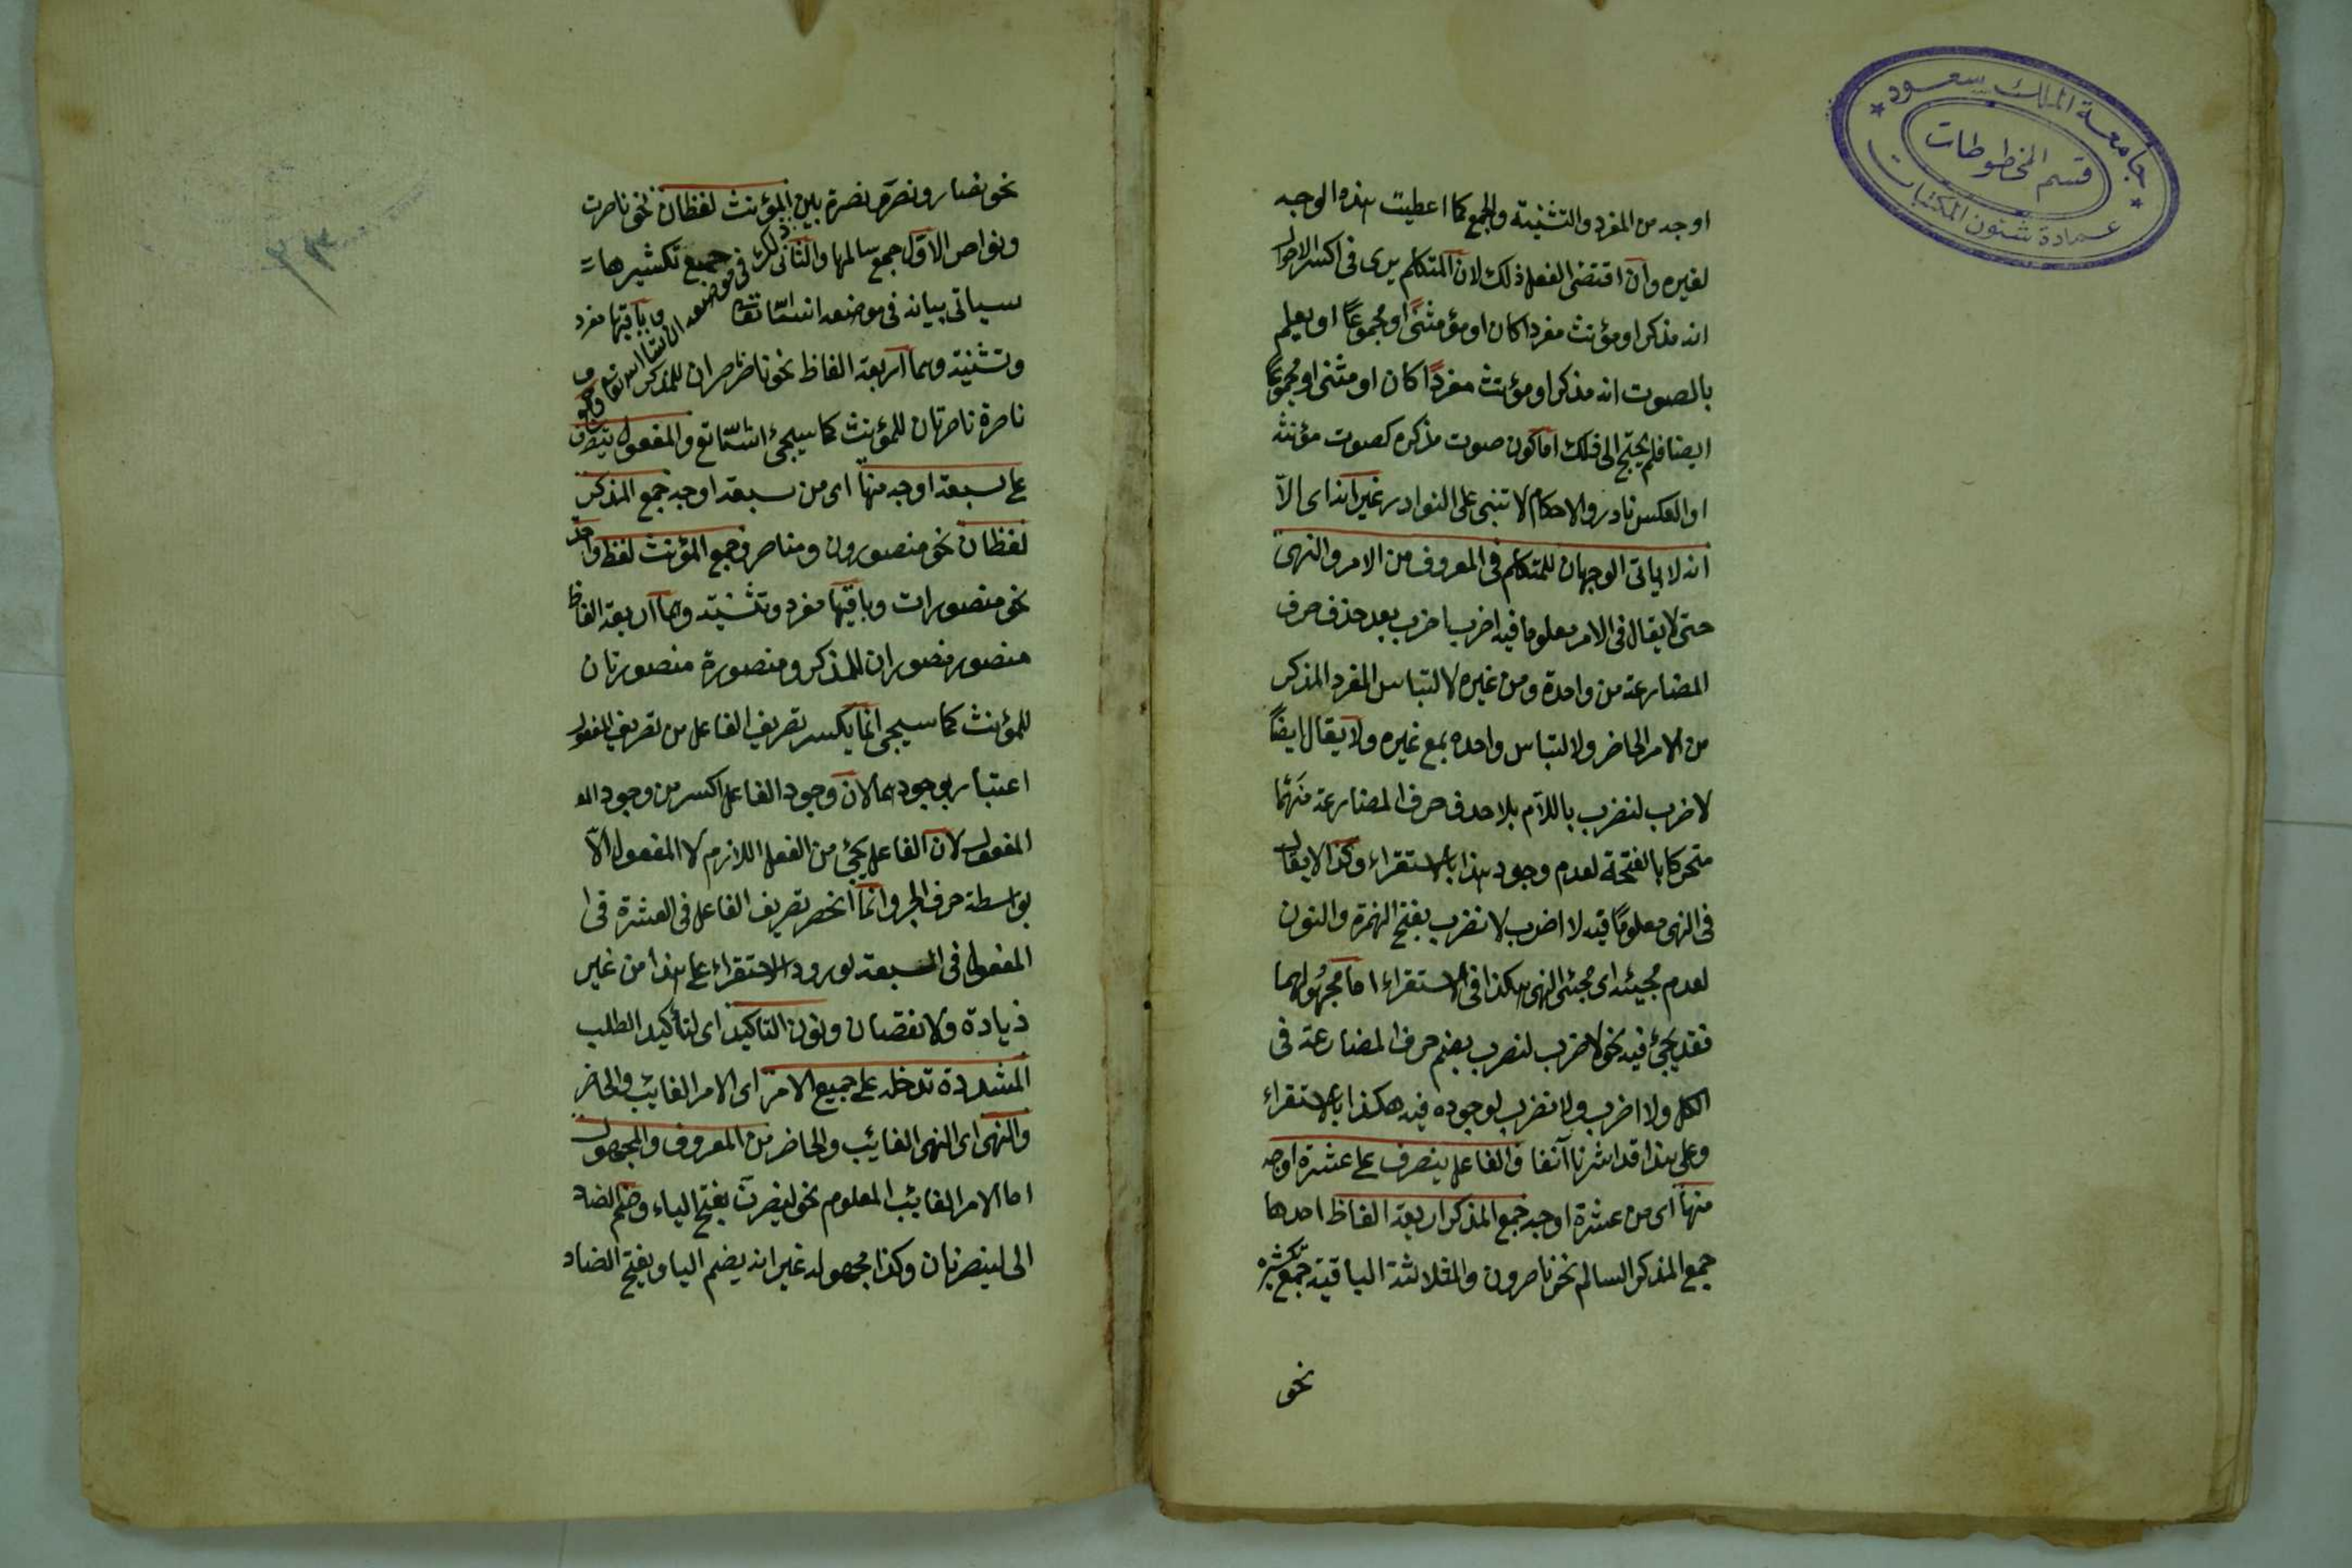 جامعة الملك سعود
قسم المخطوطات
عمادة شئون المكتبات
اوجه من المفرد والتثنية والجمع كما اعطيت هذه الوجه
لغيره وان اقتضى الفعل ذلك لان المتكلم يرى فى اكسر الاحوال
انه مذكر او مؤنث مفردا كان او مثنى او مجموعًا او يعلم
بالصوت انه مذكر او مؤنث مفردًا كان او مثنى او مجموعًا
ايضا فلم يحتج الى ذلك اما كون صوت مذكره كصوت مؤنثه
او العكس نادر والاحكام لا تنبى على النوادر غير انه اى الاّ
انه لا ياتى الوجهان للمتكلم فى المعروف من الامر والنهى
حتى لا يقال فى الامر معلوما فيه اضرب اضرب بعد حذف حرف
المضارعة من واحدة ومن غيره لالتباس المفرد المذكر
من الامر الحاضر ولالتباس واحده بمع غيره ولا يقال ايضًا
لاضرب لنضرب باللآم بلا حذف حرف المضارعة منهما
متحركا بالفتحة لعدم وجود هذا بالاستقراء وكذا لا يقال
فى النهى معلومًا فيه لا اضرب لا نضرب بفتح الهمزة والنون
لعدم مجيئه اى مجئى النهى هكذا فى الاستقراء اما مجهولهما
فقد يجئ فيه نحو لاضرب لنضرب بضم حرف المضارعة فى
الكل ولا اضرب ولا نضرب لوجوده فيه هكذا بالاستقراء
وعلى هذا قد اشرنا آنفا والفاعل يتصرف على عشرة اوجه
منها اى من عشرة اوجه جمع المذكر اربعة الفاظ احدها
جمع المذكر السالم نحو ناصرون والثلاثة الباقية جمع تكثيره
نحو
نحو نصار ونصر ونصرة بين المؤنث لفظان نحو ناصرت
ونواصر الاول جمع سالمها والثانى جميع تكثيرها
سياتى بيانه فى موضعه انشا وباقيها مفرد
وتثنية وهما اربعة الفاظ نحو ناصر ناصران للمذكر و
ناصرة ناصرتان للمؤنث كما سيجئ انشاتع والمفعول يتصرف
على سبعة اوجه منها اى من سبعة اوجه جمع المذكر
لفظان نحو منصورون ومناصر وجمع المؤنث لفظ واحد
نحو منصورات وباقيها مفرد وتثنية وهما اربعة الفاظ
منصور منصوران للمذكر ومنصورة منصورتان
للمؤنث كما سيجى انما يكسر تصريف الفاعل من تصريف المفعول
اعتبار بوجودهما لان وجود الفاعل اكسر من وجود الم
المفعول لان الفاعل يجئ من الفعل اللازم لا المفعول الاّ
بواسطة حرف الجر وانما انحصر تصريف الفاعل فى العشرة فى ا
المفعول فى السبعة لورود الاستقراء على هذا من غير
زيادة ولا نقصان ونون التاكيد اى لتأكيد الطلب
المشددة تدخل على جميع الامر اى الامر الغايب والحاضر
والنهى اى النهى الغائب والحاضر من المعروف والمجهول
اما الامر الغائب المعلوم نحو لينصرن بفتح الياء وضم الضاد
الى لينصرنان وكذا مجهوله غير انه يضم اليا ويفتح الضاد